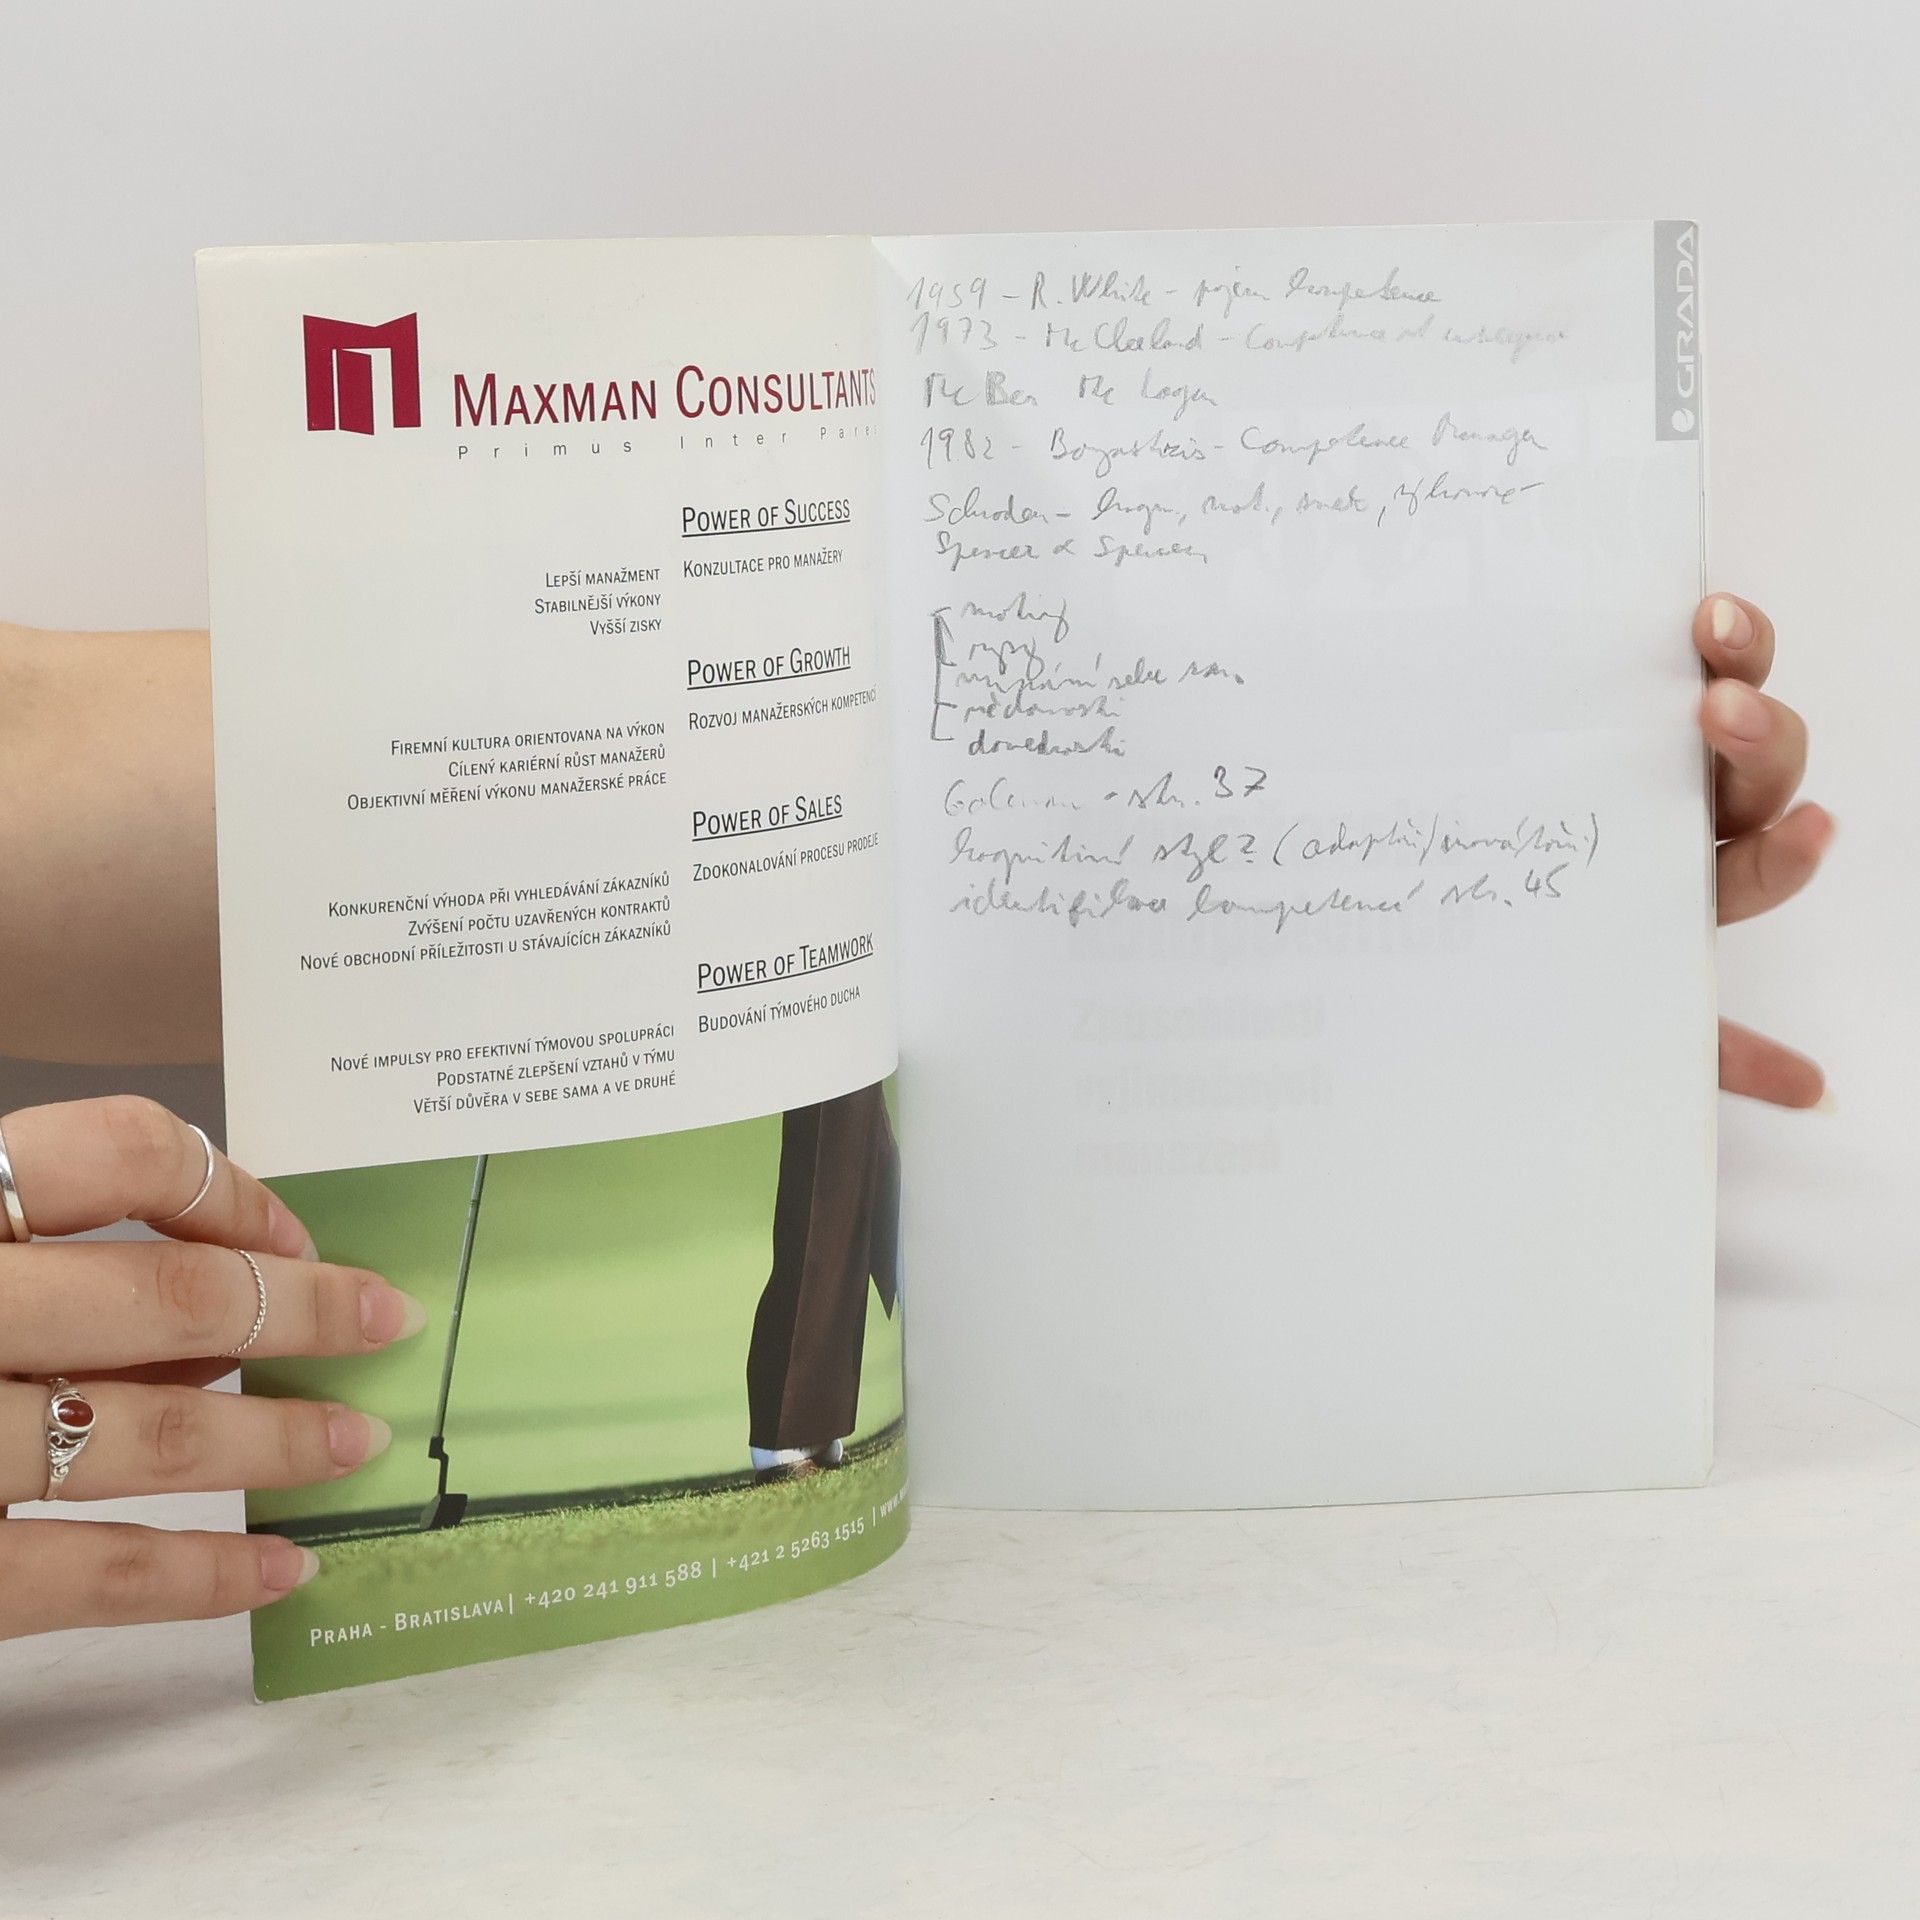 MAXMAN CONSULTANTS
Primus Inter Pares
POWER OF SUCCESS
KONZULTACE PRO MANAŽERY
LEPŠÍ MANAŽMENT
STABILNĚJŠÍ VÝKONY
VYŠŠÍ ZISKY
POWER OF GROWTH
ROZVOJ MANAŽERSKÝCH KOMPETENCÍ
FIREMNÍ KULTURA ORIENTOVANA NA VÝKON
CÍLENÝ KARIÉRNÍ RŮST MANAŽERŮ
OBJEKTIVNÍ MĚŘENÍ VÝKONU MANAŽERSKÉ PRÁCE
POWER OF SALES
ZDOKONALOVÁNÍ PROCESU PRODEJE
KONKURENČNÍ VÝHODA PŘI VYHLEDÁVÁNÍ ZÁKAZNÍKŮ
ZVÝŠENÍ POČTU UZAVŘENÝCH KONTRAKTŮ
NOVÉ OBCHODNÍ PŘÍLEŽITOSTI U STÁVAJÍCÍCH ZÁKAZNÍKŮ
POWER OF TEAMWORK
BUDOVÁNÍ TÝMOVÉHO DUCHA
NOVÉ IMPULSY PRO EFEKTIVNÍ TÝMOVOU SPOLUPRÁCI
PODSTATNÉ ZLEPŠENÍ VZTAHŮ V TÝMU
VĚTŠÍ DŮVĚRA V SEBE SAMA A VE DRUHÉ
PRAHA - BRATISLAVA | +420 241 911 588 | +421 2 5263 1515 | www.
GRADA
1959 - R. White - pojem kompetence
1973 - Mc Clelland - Competence
Mc Ber Mc Lagan
1982 - Boyatzis - Competence Manager
Schroder - kogn., mot.,
Spencer & Spencer
- motivy
- rysy
- vnímání sebe sam.
- vědomosti
- dovednosti
Goleman - str. 37
kognitivní styl? (adaptivní/inovátorní)
identifikace kompetencí str. 45